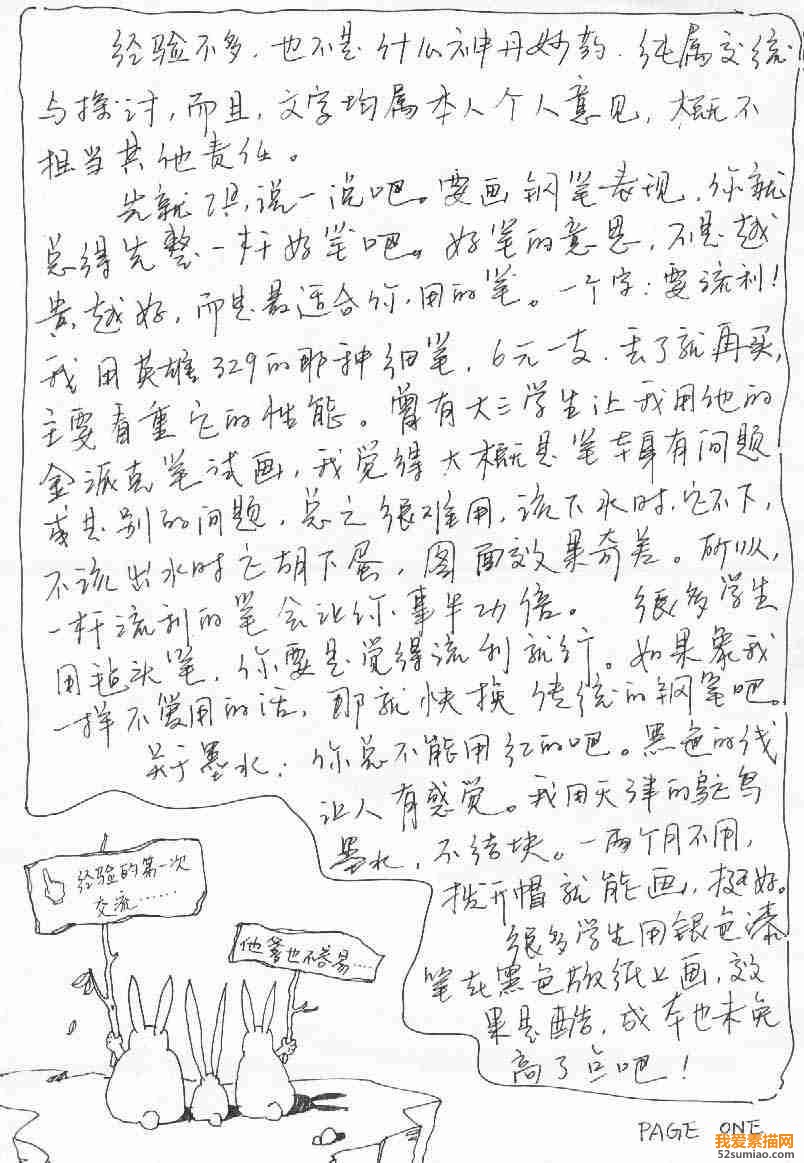 经验不多，也不是什么神丹妙药，纯属交流
与探讨，而且，文字均属本人个人意见，概不
担当其他责任。
先就工具，说一说吧。要画钢笔表现，你就
总得先整一杆好笔吧。好笔的意思，不是越
贵越好，而是最适合你用的笔。一个字：要流利！
我用英雄329的那种细笔，6元一支，丢了就再买，
主要看重它的性能。曾有大三学生让我用他的
金派克笔试画，我觉得大概是笔本身有问题
或其别的问题，总之很难用，该下水时，它不下，
不该出水时它胡下蛋，图面效果奇差。所以，
一杆流利的笔会让你事半功倍。 很多学生
用毡头笔，你要是觉得流利就行。如果象我
一样不爱用的话，那就快换传统的钢笔吧。
关于墨水：你总不能用红的吧。黑色的线
让人有感觉。我用天津的鸵鸟
墨水，不结块。一两个月不用，
拨开帽就能画，挺好。
很多学生用银色漆
笔在黑色版纸上画，效
果是酷，成本也未免
高了点吧！
经验的第一次
交流……
他爹也不容易…
PAGE ONE
我爱素描网
52sumiao.com